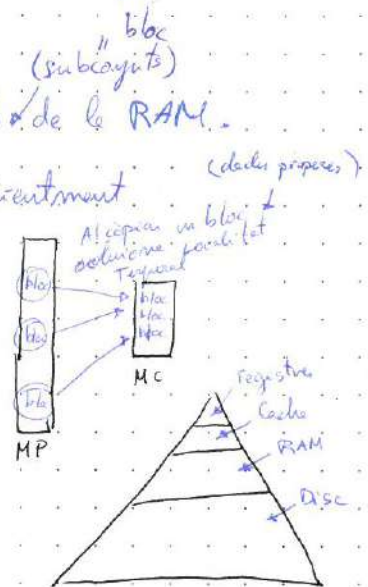 bloc
(subconjunts)
de la RAM.
(dades properes)
Al copiar un bloc
Temporal
bloc
bloc
bloc
bloc
bloc
bloc
MP
MC
registres
Cache
RAM
Disc